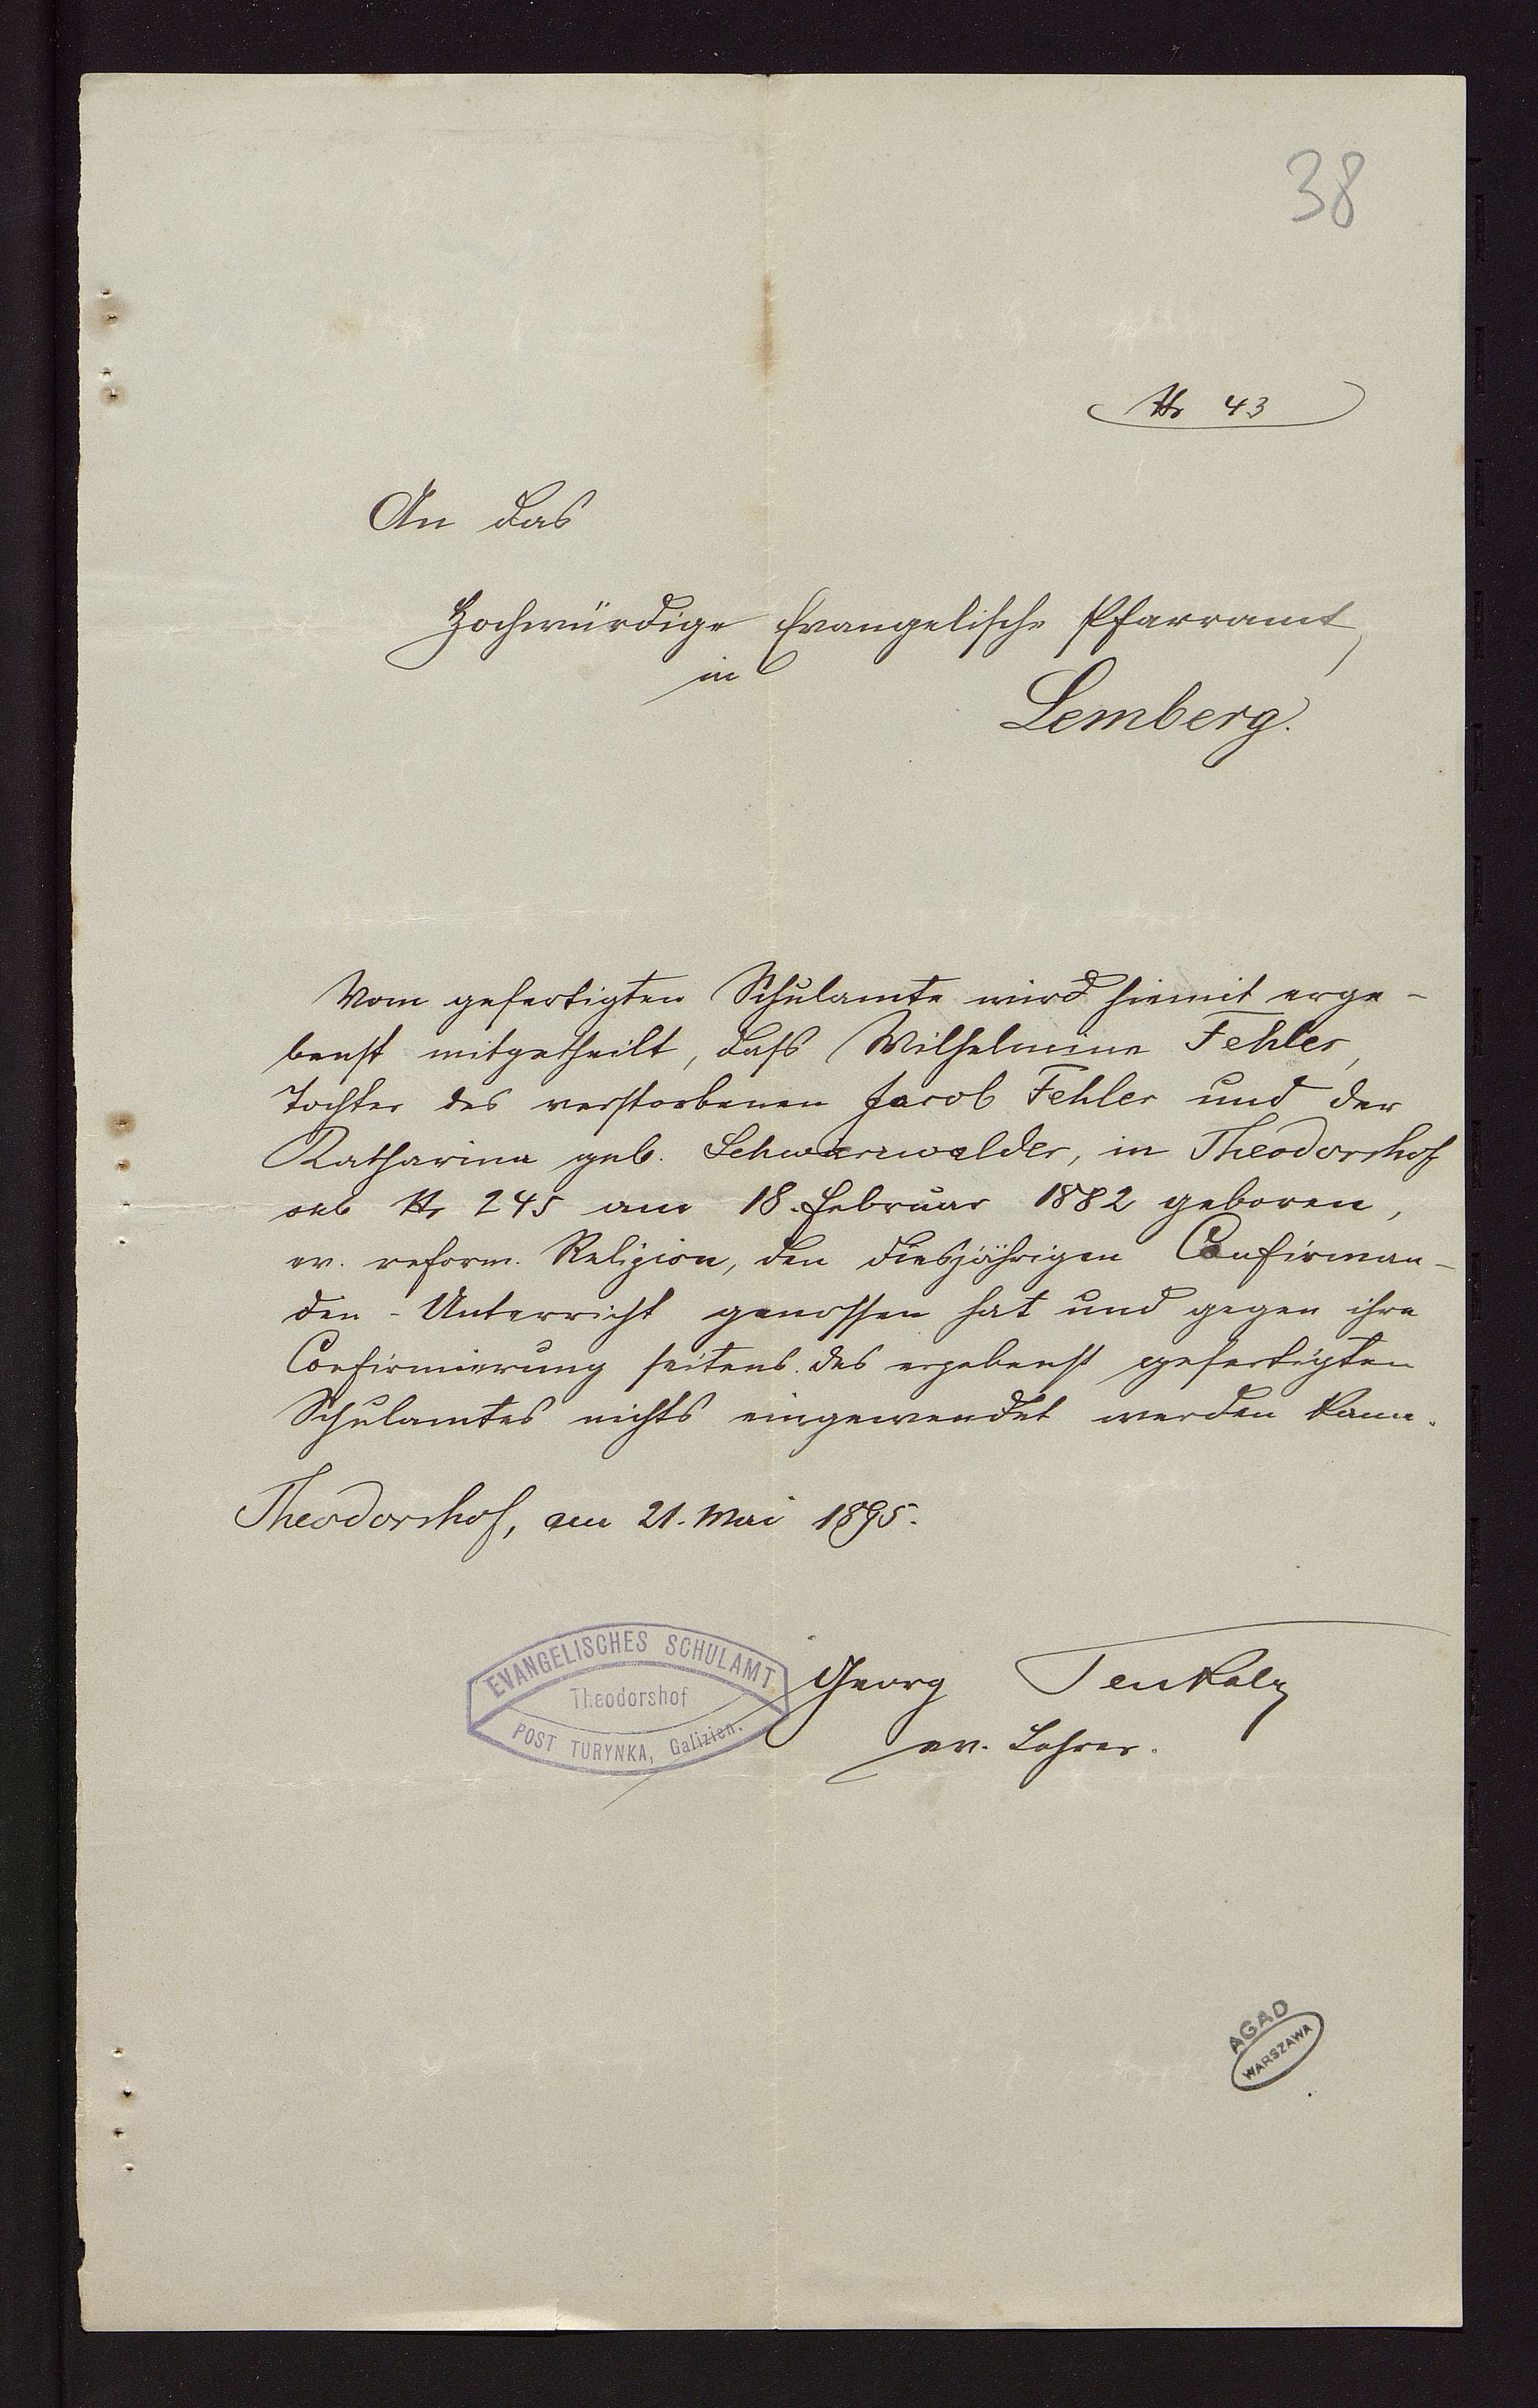 38
Nr 43
An das
Hochwürdige Evangelische Pfarramt,
in
Lemberg.
Vom gefertigten Schulamte wird hiemit erge-
benst mitgetheilt, dass Wilhelmine Fehler,
Tochter des verstorbenen Jacob Fehler und der
Katharina geb. Schwarzwalder, in Theodorshof
sub Nr 245 am 18. Februar 1882 geboren,
ev. reform. Religion, den diesjährigen Confirman-
den-Unterricht genossen hat und gegen ihre
Confirmierung seitens des ergebenst gefertigten
Schulamtes nichts eingewendet werden kann.
Theodorshof, am 21. Mai 1895.
EVANGELISCHES SCHULAMT
Theodorshof
POST TURYNKA, Galizien.
Georg
ev. Lehrer.
AGAD
WARSZAWA